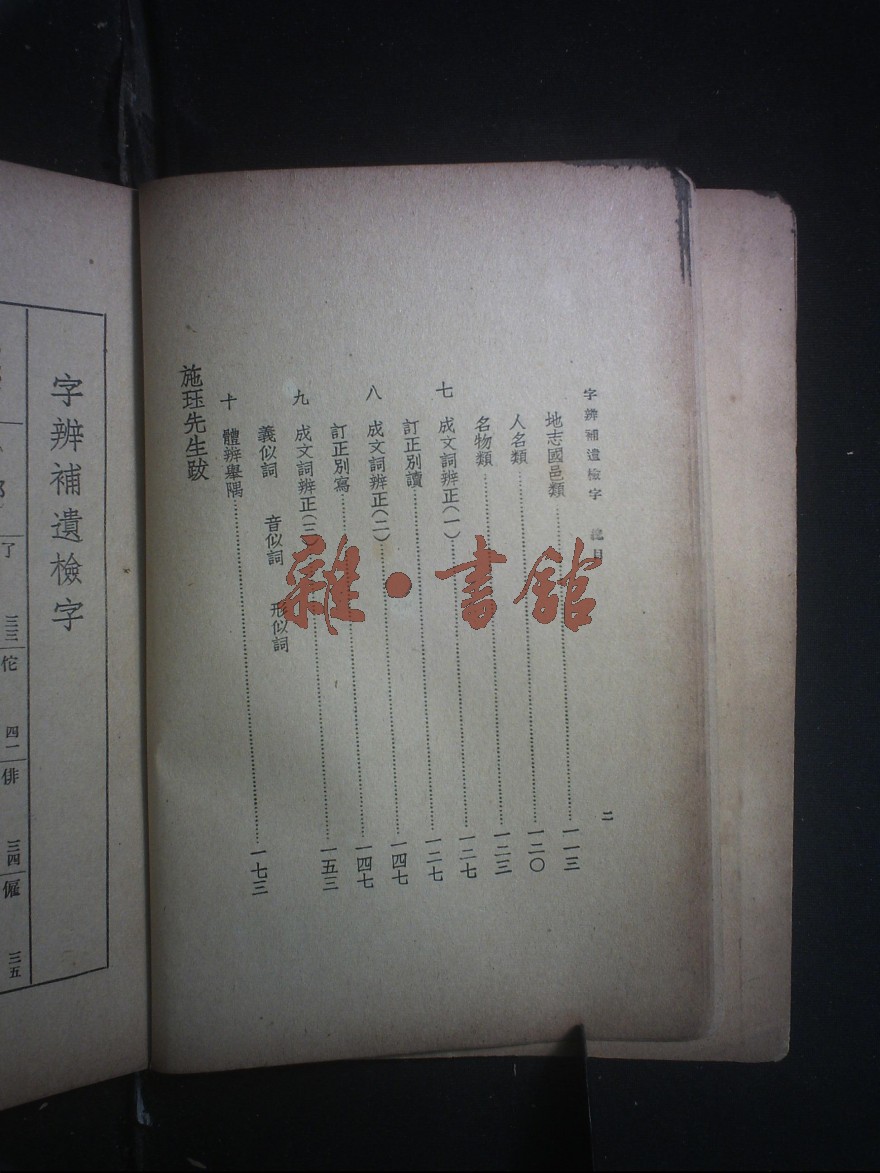 字辨補遺檢字 總目 二
地志國邑類……一一三
人名類……一二〇
名物類……一二三
七 成文詞辨正(一)……一二七
訂正別讀……一二七
八 成文詞辨正(二)……一四七
訂正別寫……一四七
九 成文詞辨正(三)……一五三
義似詞 音似詞 形似詞
十 體辨舉隅……一七三
施珏先生跋
雜·書館
字辨補遺檢字
了 三三
佗 四一
俳 三四
僱 三五